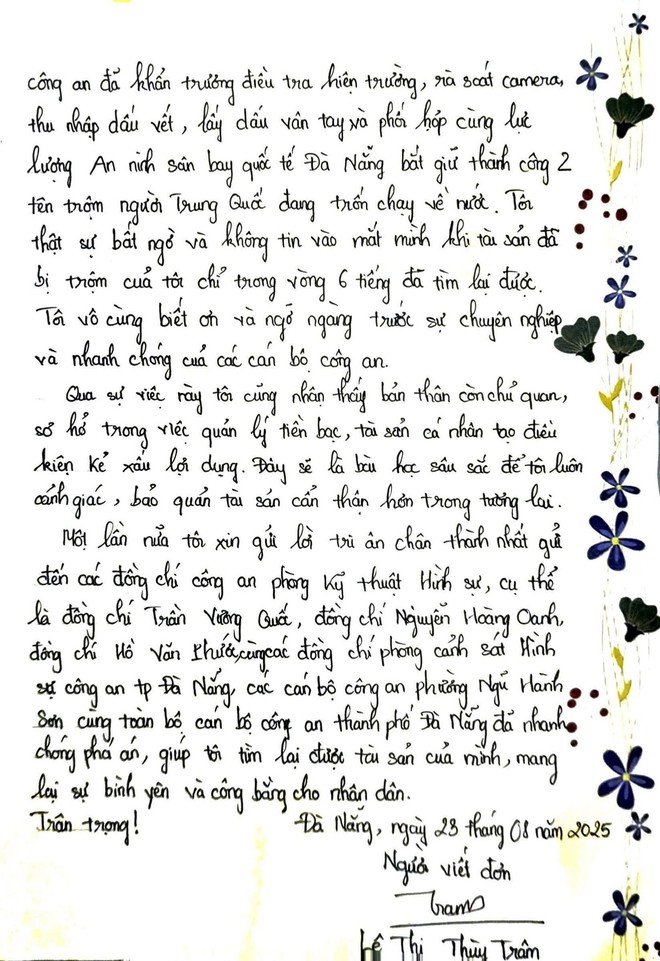 công an đã khẩn trương điều tra hiện trường, rà soát camera,
thu nhập dấu vết, lấy dấu vân tay và phối hợp cùng lực
lượng An ninh sân bay quốc tế Đà Nẵng bắt giữ thành công 2
tên trộm người Trung Quốc đang trốn chạy về nước. Tôi
thật sự bất ngờ và không tin vào mắt mình khi tài sản đã
bị trộm của tôi chỉ trong vòng 6 tiếng đã tìm lại được.
Tôi vô cùng biết ơn và ngỡ ngàng trước sự chuyên nghiệp
và nhanh chóng của các cán bộ công an.
Qua sự việc này tôi cũng nhận thấy bản thân còn chủ quan,
sơ hở trong việc quản lý tiền bạc, tài sản cá nhân tạo điều
kiện kẻ xấu lợi dụng. Đây sẽ là bài học sâu sắc để tôi luôn
cảnh giác, bảo quản tài sản cẩn thận hơn trong tương lai.
Một lần nữa tôi xin gửi lời tri ân chân thành nhất gửi
đến các đồng chí công an phòng Kỹ thuật Hình sự, cụ thể
là đồng chí Trần Vương Quốc, đồng chí Nguyễn Hoàng Oanh,
đồng chí Hồ Văn Phước, cùng các đồng chí phòng cảnh sát Hình
sự công an tp Đà Nẵng, các cán bộ công an phường Ngũ Hành
Sơn cùng toàn bộ cán bộ công an thành phố Đà Nẵng đã nhanh
chóng phá án, giúp tôi tìm lại được tài sản của mình, mang
lại sự bình yên và công bằng cho nhân dân.
Trân trọng!
Đà Nẵng, ngày 23 tháng 08 năm 2025
Người viết đơn
Tram
Lê Thị Thùy Trâm